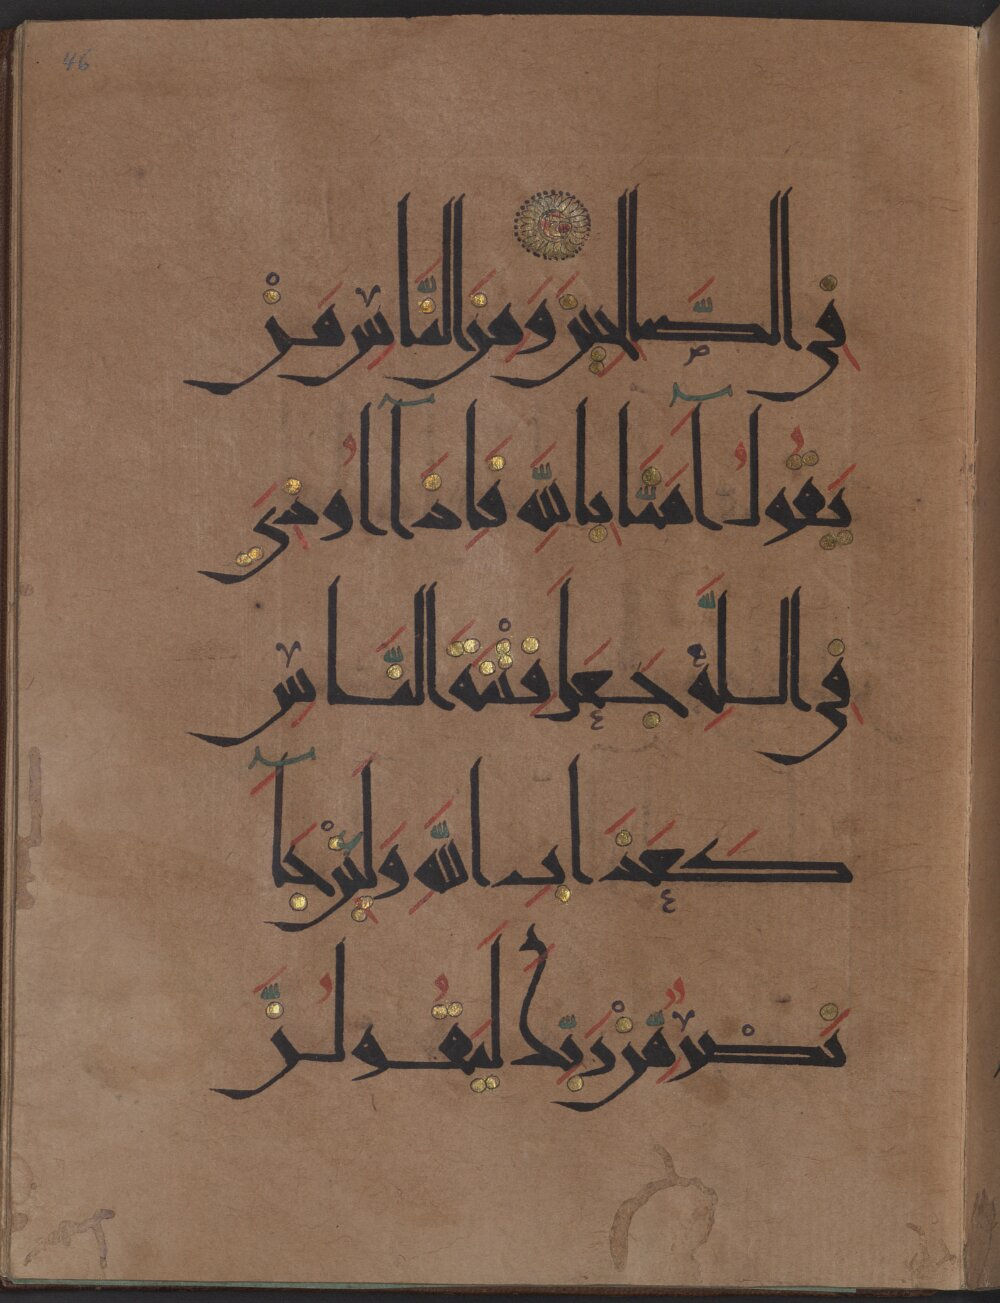 46
فِي الصَّالِحِينَ وَمِنَ النَّاسِ مَنْ
يَقُولُ آمَنَّا بِاللَّهِ فَإِذَا أُوذِيَ
فِي اللَّهِ جَعَلَ فِتْنَةَ النَّاسِ
كَعَذَابِ اللَّهِ وَلَئِنْ جَآ
نَصْرٌ مِّنْ رَبِّكَ لَيَقُولُنَّ